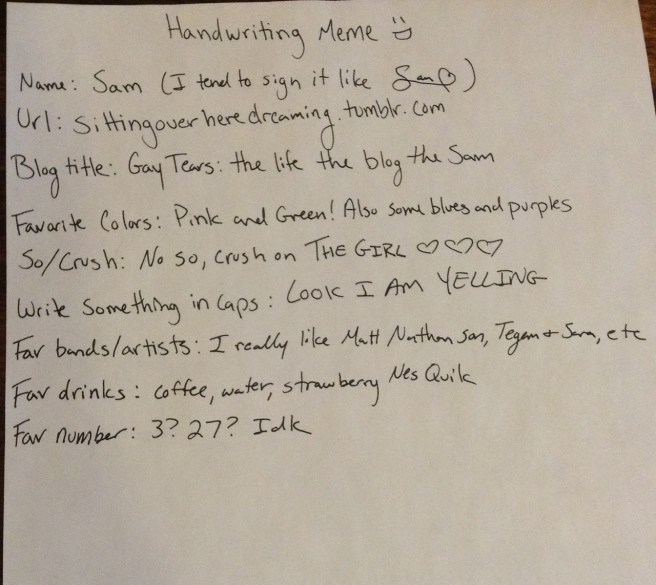 Handwriting Meme :)
Name: Sam (I tend to sign it like Sam ♡)
Url: Sittingoverheredreaming.tumblr.com
Blog title: Gay Tears: the life the blog the Sam
Favorite Colors: Pink and Green! Also some blues and purples
So/Crush: No so, crush on THE GIRL ♡♡♡
Write Something in Caps: LOOK I AM YELLING
Fav bands/artists: I really like Matt Nathanson, Tegan + Sara, etc
Fav drinks: coffee, water, strawberry Nes Quik
Fav number: 3? 27? Idk